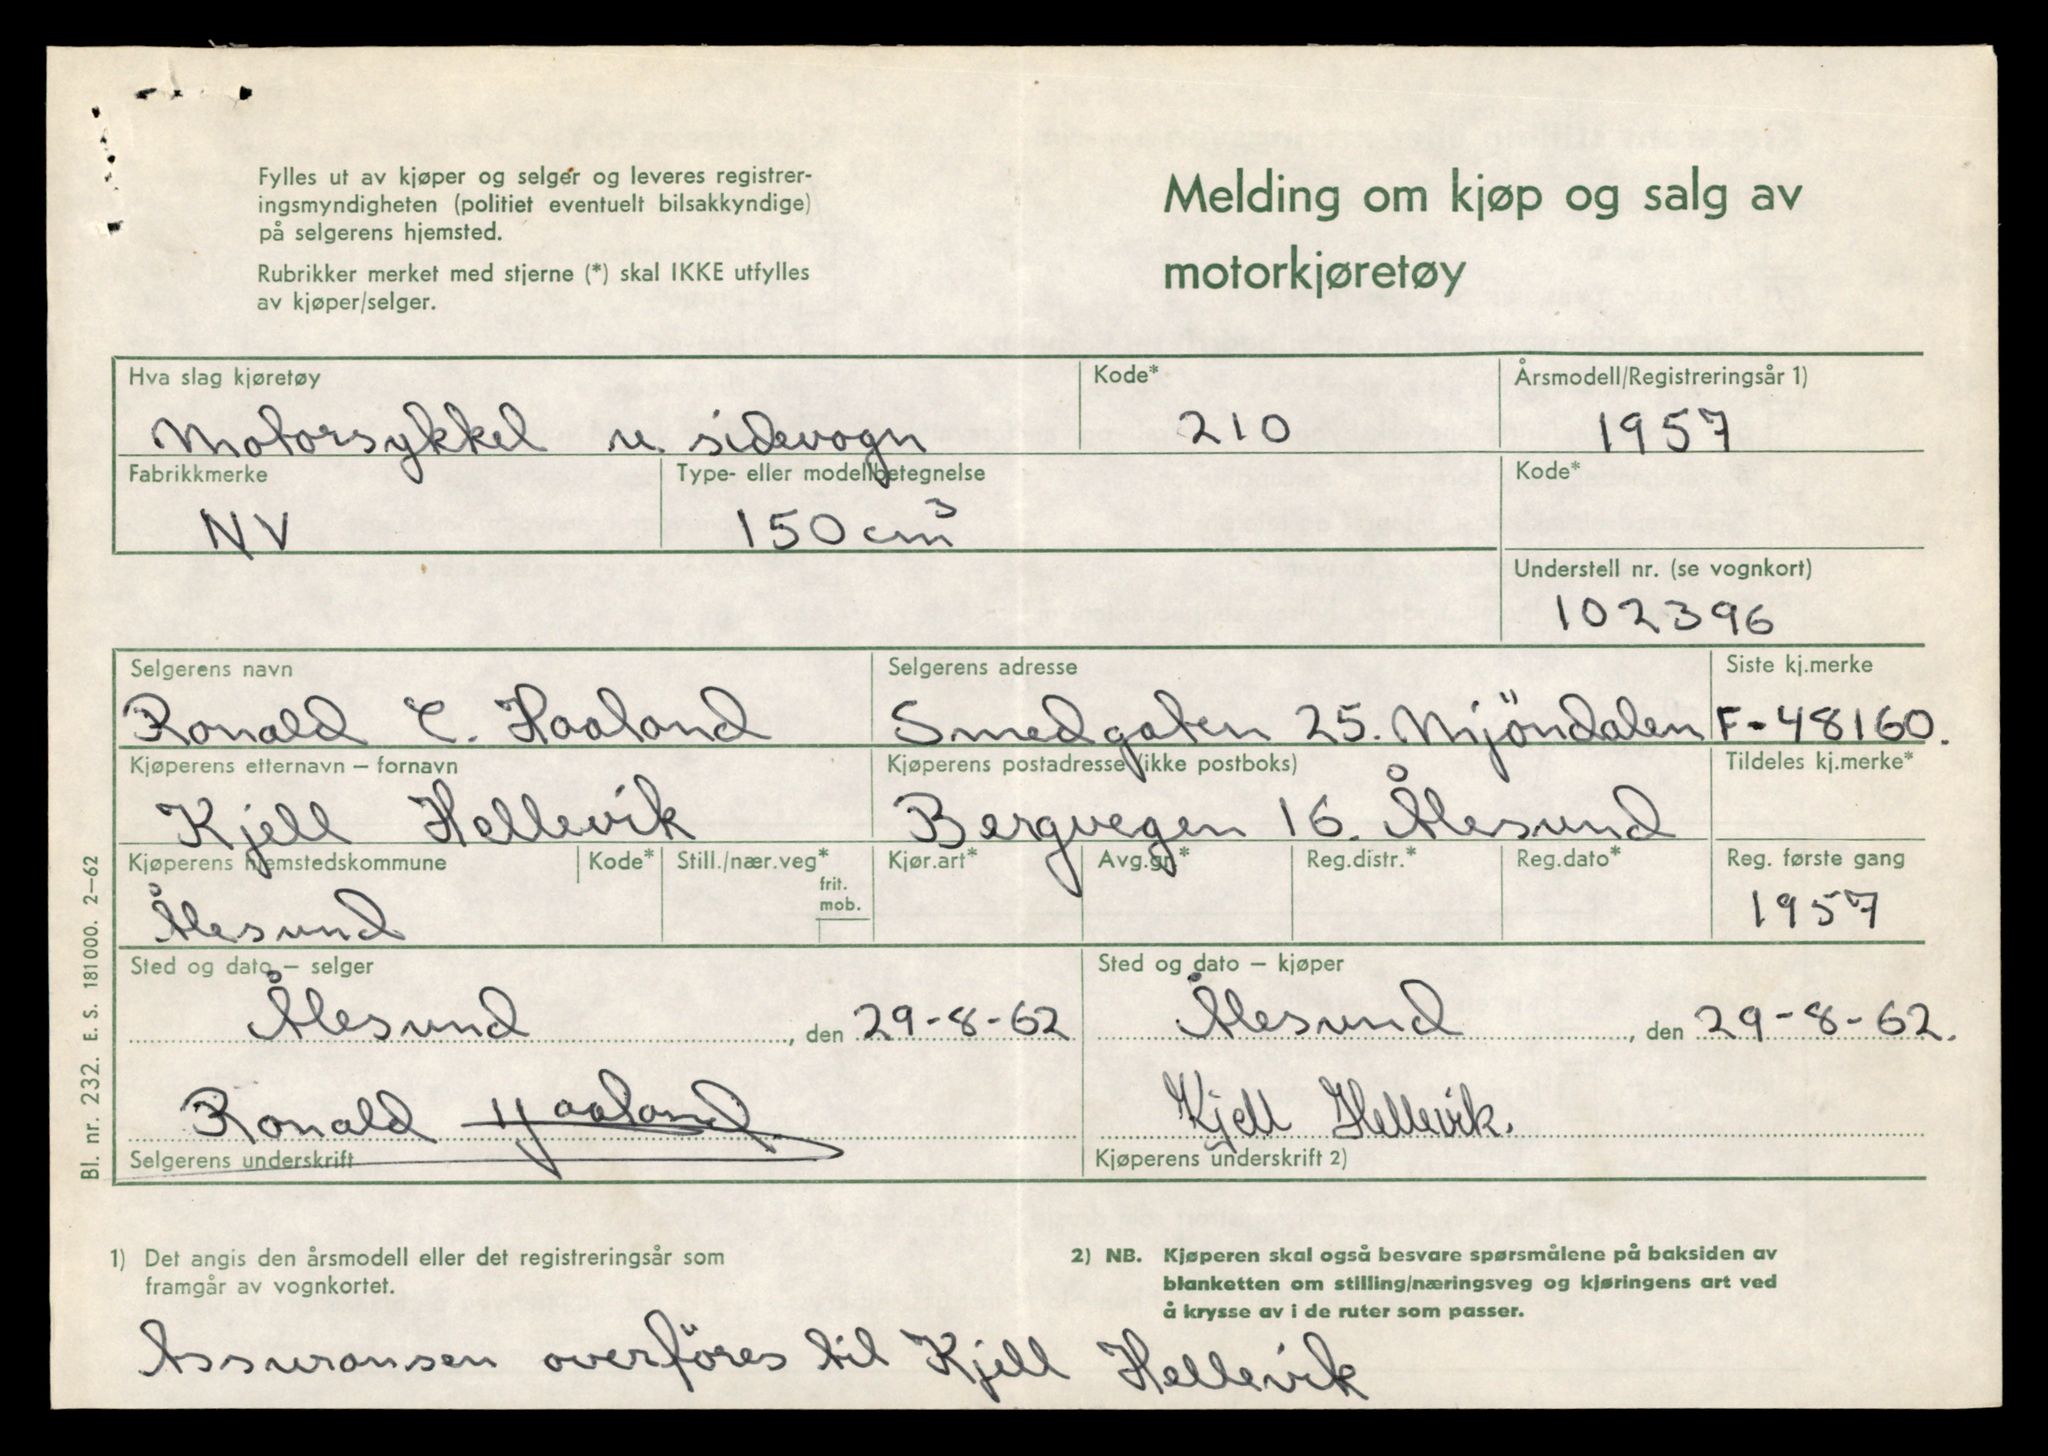 Fylles ut av kjøper og selger og leveres registrer-
ingsmyndigheten (politiet eventuelt bilsakkyndige)
på selgerens hjemsted.
Rubrikker merket med stjerne (*) skal IKKE utfylles
av kjøper/selger.
Melding om kjøp og salg av
motorkjøretøy
Hva slag kjøretøy Kode* Årsmodell/Registreringsår 1)
Motorsykkel u. sidevogn 210 1957
Fabrikkmerke Type- eller modellbetegnelse Kode*
NV 150 cm³
Understell nr. (se vognkort)
102396
Selgerens navn Selgerens adresse Siste kj.merke
Ronald Haaland Smedgaten 25. Mjöndalen F-48160.
Kjøperens etternavn – fornavn Kjøperens postadresse (ikke postboks) Tildeles kj.merke*
Kjell Hellevik Bergvegen 16. Ålesund
Kjøperens hjemstedskommune Kode* Still./nær.veg* Kjør.art* Avg.gr.* Reg.distr.* Reg.dato* Reg. første gang
frit.
mob.
Ålesund 1957
Sted og dato – selger Sted og dato – kjøper
Ålesund, den 29-8-62 Ålesund, den 29-8-62.
Ronald Haaland Kjell Hellevik.
Selgerens underskrift Kjøperens underskrift 2)
Bl. nr. 232. E. S. 181000. 2–62
1) Det angis den årsmodell eller det registreringsår som
framgår av vognkortet.
2) NB. Kjøperen skal også besvare spørsmålene på baksiden av
blanketten om stilling/næringsveg og kjøringens art ved
å krysse av i de ruter som passer.
Assuransen overföres til Kjell Hellevik